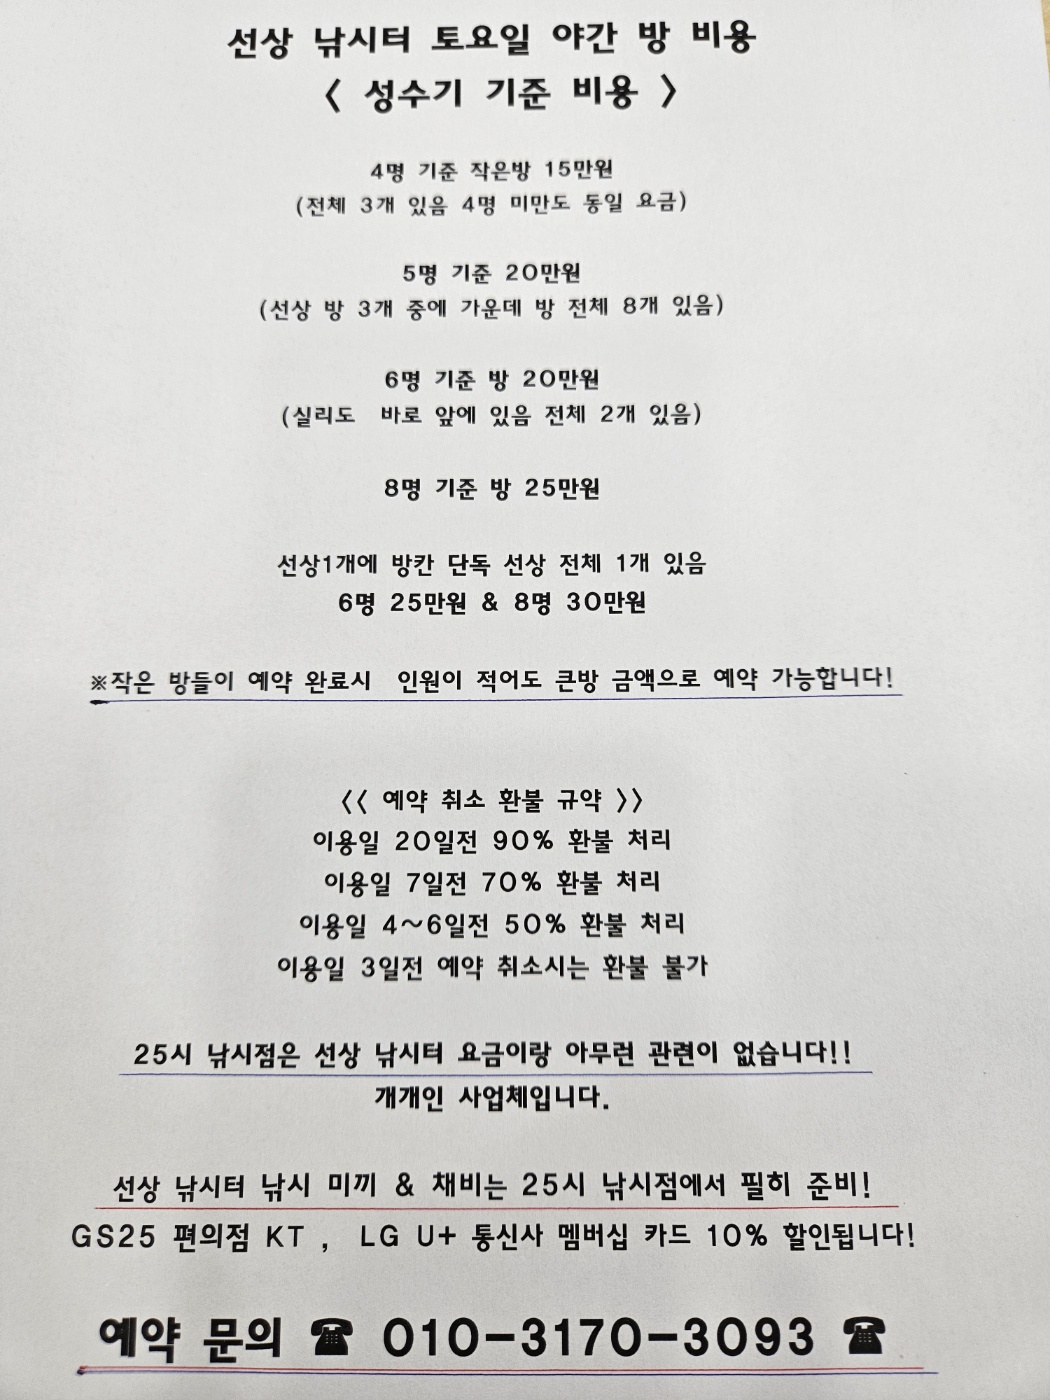 선상 낚시터 토요일 야간 방 비용
< 성수기 기준 비용 >
4명 기준 작은방 15만원
(전체 3개 있음 4명 미만도 동일 요금)
5명 기준 20만원
(선상 방 3개 중에 가운데 방 전체 8개 있음)
6명 기준 방 20만원
(실리도 바로 앞에 있음 전체 2개 있음)
8명 기준 방 25만원
선상1개에 방칸 단독 선상 전체 1개 있음
6명 25만원 & 8명 30만원
※작은 방들이 예약 완료시 인원이 적어도 큰방 금액으로 예약 가능합니다!
<< 예약 취소 환불 규약 >>
이용일 20일전 90% 환불 처리
이용일 7일전 70% 환불 처리
이용일 4~6일전 50% 환불 처리
이용일 3일전 예약 취소시는 환불 불가
25시 낚시점은 선상 낚시터 요금이랑 아무런 관련이 없습니다!!
개개인 사업체입니다.
선상 낚시터 낚시 미끼 & 채비는 25시 낚시점에서 필히 준비!
GS25 편의점 KT , LG U+ 통신사 멤버십 카드 10% 할인됩니다!
예약 문의 ☎ 010-3170-3093 ☎